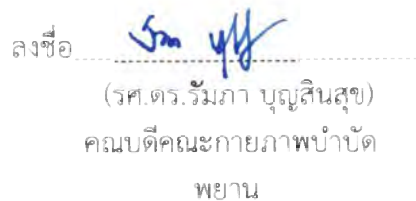 ลงชื่อ
(รศ.ดร.รัมภา บุญสินสุข)
คณบดีคณะกายภาพบำบัด
พยาน